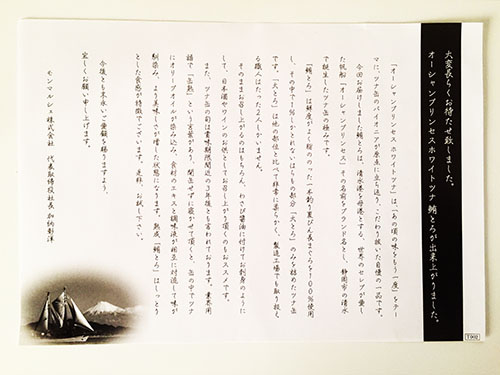 大変長らくお待たせ致しました。
オーシャンプリンセスホワイトツナ 鮪とろが出来上がりました。
「オーシャンプリンセスホワイトツナ」は、「あの頃の味をもう一度」をテー
マに、ツナ缶のパイオニアが原点に立ち返り、こだわり抜いた自慢の一品です。
今回お届けしました鮪とろは、清水港を母港とする、世界のセレブが愛し
た帆船「オーシャンプリンセス」その名前をブランド名とし、静岡市の清水
で誕生したツナ缶の極みです。
「鮪とろ」は鮮度がよく脂ののった一本釣り夏びん長まぐろを100%使用
し、その中で1%しかとれないはらもの部分「大とろ」のみを詰めたツナ缶
です。「大とろ」は他の部位と比べて非常に柔らかく、製造工場でも取り扱え
る職人はたった2人しかいません。
そのままお召し上がるのはもちろん、わさび醤油に付けてお刺身のように
して、日本酒やワインのお供としてお召し上がり頂くのもおススメです。
また、ツナ缶の旬は賞味期限間近の3年後とも言われております。業界用
語で「缶熟」という言葉があり、開缶せずに寝かせて頂くと、缶の中でツナ
にオリーブオイルが染み込み、食材のエキスと調味液が相互に対流して味が
馴染み、より美味しさが増した状態になります。熟成「鮪とろ」はしっとり
とした食感が特徴でございます。是非、お試し下さい。
今後とも末永いご愛顧を賜りますよう、
宜しくお願い申し上げます。
モンマルシェ株式会社 代表取締役社長 加納彰洋
T002